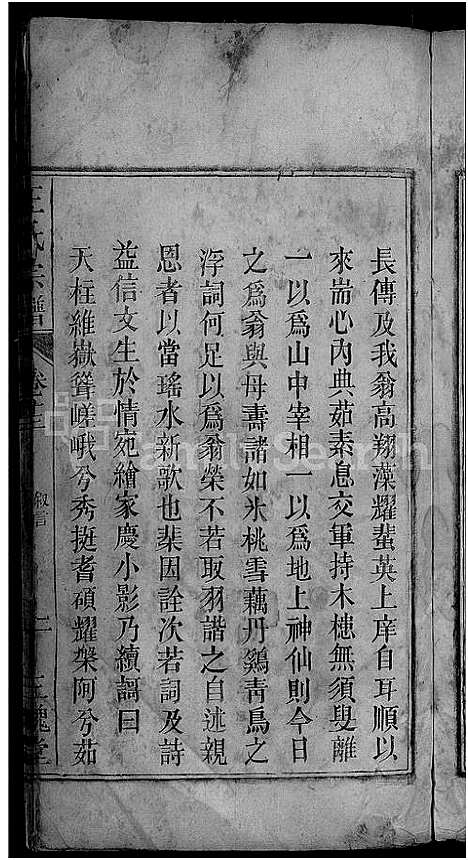 長傳及我翁高翔藻耀蜚英上庠自耳順以
來耑心內典茹素息交軍持木穗無須叟離
一以為山中宰相一以為地上神仙則今日
之為翁與母壽諸如氷桃雪藕丹鷄青鳥之
浮詞何足以為翁榮不若取羽諧之自述親
恩者以當瑤水新歌也棐因詮次若詞及詩
益信文生於情宛繪家慶小影乃續謳曰
天柱維嶽聳嵯峨兮秀挺耆碩耀槃阿兮茹
王氏宗譜 卷十二 敍言 二 三槐堂
Family Search